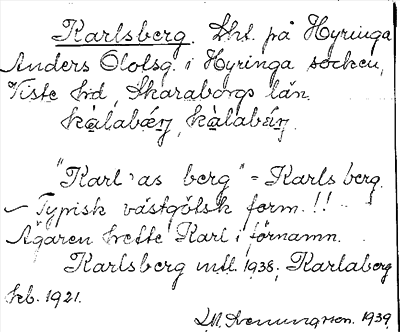 Karlsberg. Lht. på Hyringa
Anders Olofsg. i Hyringa socken,
Viste hd, Skaraborgs län.
kàlabǽrj, kàlabǽrj.
"Karl'as berg" = Karlsberg.
– Typisk västgötsk form.!! –
Ägaren hette Karl i förnamn.
Karlsberg mtl. 1938; Karlaberg
hfb. 1921.
1939